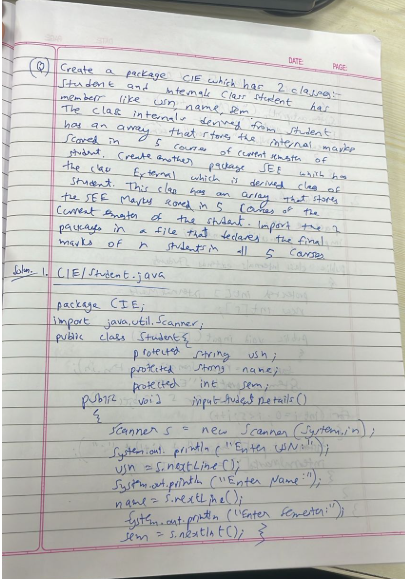 DATE: PAGE:
Q) Create a package CIE which has 2 classes:-
Student and Internals Class Student has
members like usn name, sem
The class internals derived from student
has an array that stores the internal marks
scored in 5 courses of current semester of
student. Create another package SEE which has
the class External which is derived class of
Student. This class has an array that stores
the SEE Marks scored in 5 Courses of the
Current semester of the student. Import the 2
packages in a file that declares the final
marks of n students in all 5 Courses
Soln. 1. CIE/Student.java
package CIE;
import java.util.Scanner;
public class Student {
protected String usn;
protected String name;
protected int sem;
public void inputStudentDetails()
{
Scanner s = new Scanner (System.in);
System.out.println ("Enter USN:");
usn = s.nextLine();
System.out.println ("Enter Name:");
name = s.nextLine();
System.out.println ("Enter Semester:");
sem = s.nextInt(); }